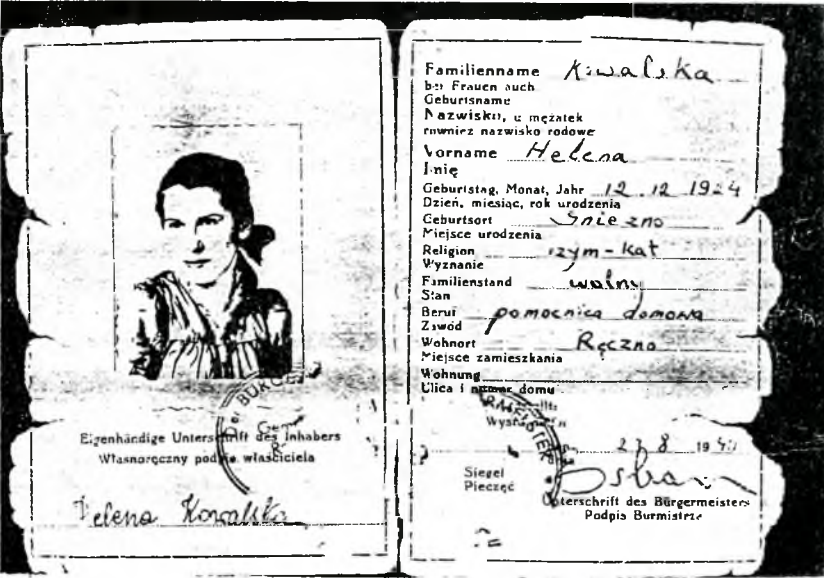 Eigenhändige Unterschrift des Inhabers
Własnoręczny podpis właściciela
Helena Kowalska
Familienname Kowalska
bei Frauen auch
Geburtsname
Nazwisko, u mężatek
również nazwisko rodowe
Vorname Helena
Imię
Geburtstag, Monat, Jahr 12 12 1924
Dzień, miesiąc, rok urodzenia
Geburtsort Gniezno
Miejsce urodzenia
Religion rzym-kat
Wyznanie
Familienstand wolny
Stan
Beruf pomocnica domowa
Zawód
Wohnort Ręczno
Miejsce zamieszkania
Wohnung
Ulica i numer domu
Siegel
Pieczęć
Unterschrift des Bürgermeisters
Podpis Burmistrza